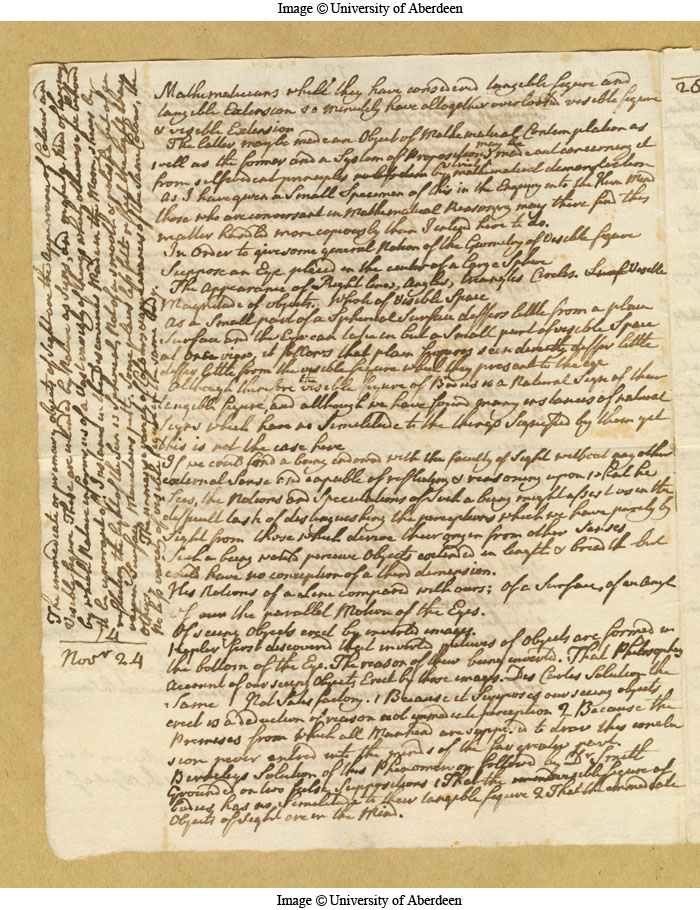 Image © University of Aberdeen
26
Mathematicians while they have considered tangible figure and
tangible Extension so minutely have altogether overlooked visible figure
& visible Extension
The latter may be made an Object of Mathematical Contemplation as
well as the former and a System of Propositions may be made concerning it
from selfevident principles by mathematical demonstration
as I have given a Small Specimen of this in the Enquiry into the Hum Mind
those who are conversant in Mathematical Reasoning may there find this
matter handled more copiously than I intend here to do.
In Order to give some general Notion of the Geometry of Visible figure
Suppose an Eye placed in the center of a large Sphere
The Appearance of Right lines, Angles, triangles Circles. Visible
Magnitude of objects. Whole of Visible Space
As a Small part of a Spherical Surface differs little from a plain
Surface and the Eye can take in but a Small part of visible Space
at one view, it follows that plain figures seen directly differ little
differ little from the visible figure which they present to the eye
Although therefore the visible figure of Bodies is a Natural Sign of their
tangible figure, and although we have found many instances of natural
signs which have no Similitude to the things Signified by them yet
this is not the case here
If we could find a being endowed with the faculty of Sight without any other
external Sense and capable of reflecting & reasoning upon what he
Sees, the Notions and Speculations of Such a being might assist us in the
difficult task of distinguishing the perceptions which we have purely by
Sight from those which derive their origin from other Senses
Such a being would perceive Objects extended in length & breadth but
could have no conception of a third dimension.
His Notions of a Line compared with ours; of a Surface, of an Angle
Of the parallel Motion of the Eyes.
Of seeing Objects erect by inverted images.
Kepler first discovered that inverted pictures of Objects are formed in
the bottom of the Eye. The reason of their being inverted. That Philosophers
Account of our seeing Objects Erect by those images. Des Cartes Solution the
Same Not Satisfactory. 1 Because it Supposes our seeing objects
erect is a deduction of reason not immediate perception 2 Because the
Premises from which all Mankind are supposed to draw this conclu
sion never entred into the minds of the far greater part
Berkeleys Solution of this Phenomenon followed by Dr Smith
Grounded on two false Suppositions 1 That the figure of
bodies, has no Similitude to their tangible figure 2 That the immediate
Objects of Sight are in the Mind.
The immediate or primary objects of Sight are the Appearances of Colour and
Visible figure. These are intended by Nature as Signs and
by which Nature informs of a vast variety of things which otherwise
to be ignorant of. A
14
Novr 24
Image © University of Aberdeen